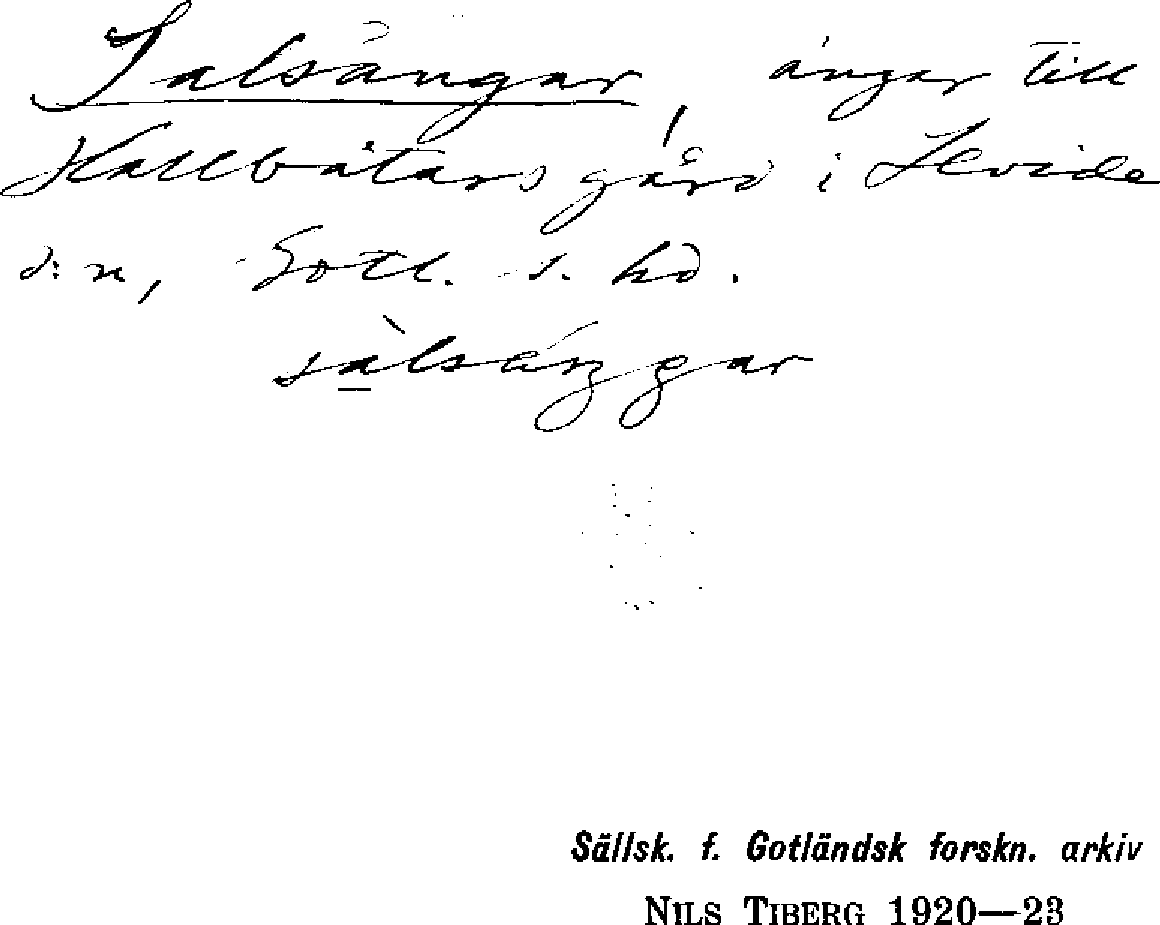 Salsängar, ängar till
Hallbåtars gård i Levide
s:n, Gotl. s. hd.
sàlsänggar
Sällsk. f. Gotländsk forskn. arkiv
NILS TIBERG 1920—23